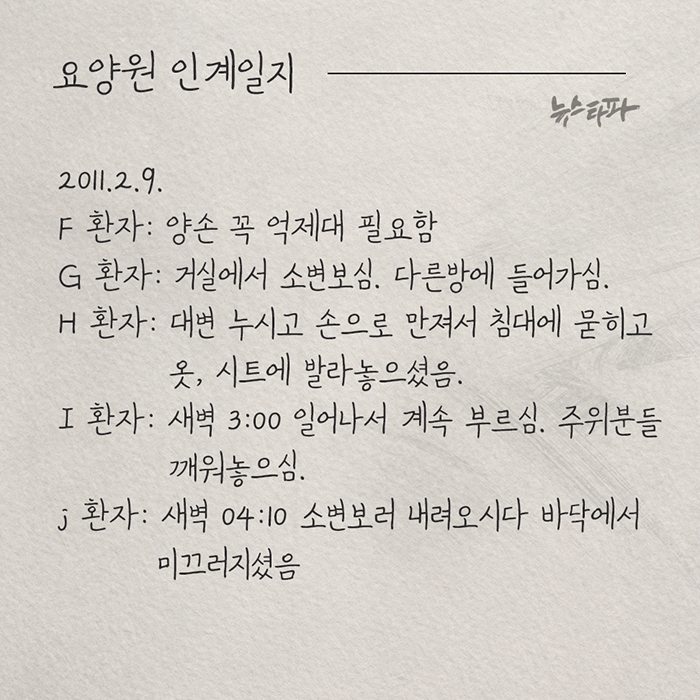 요양원 인계일지
뉴스타파
2011.2.9.
F 환자: 양손 꼭 억제대 필요함
G 환자: 거실에서 소변보심. 다른방에 들어가심.
H 환자: 대변 누시고 손으로 만져서 침대에 묻히고
옷, 시트에 발라놓으셨음.
I 환자: 새벽 3:00 일어나서 계속 부르심. 주위분들
깨워놓으심.
j 환자: 새벽 04:10 소변보러 내려오시다 바닥에서
미끄러지셨음